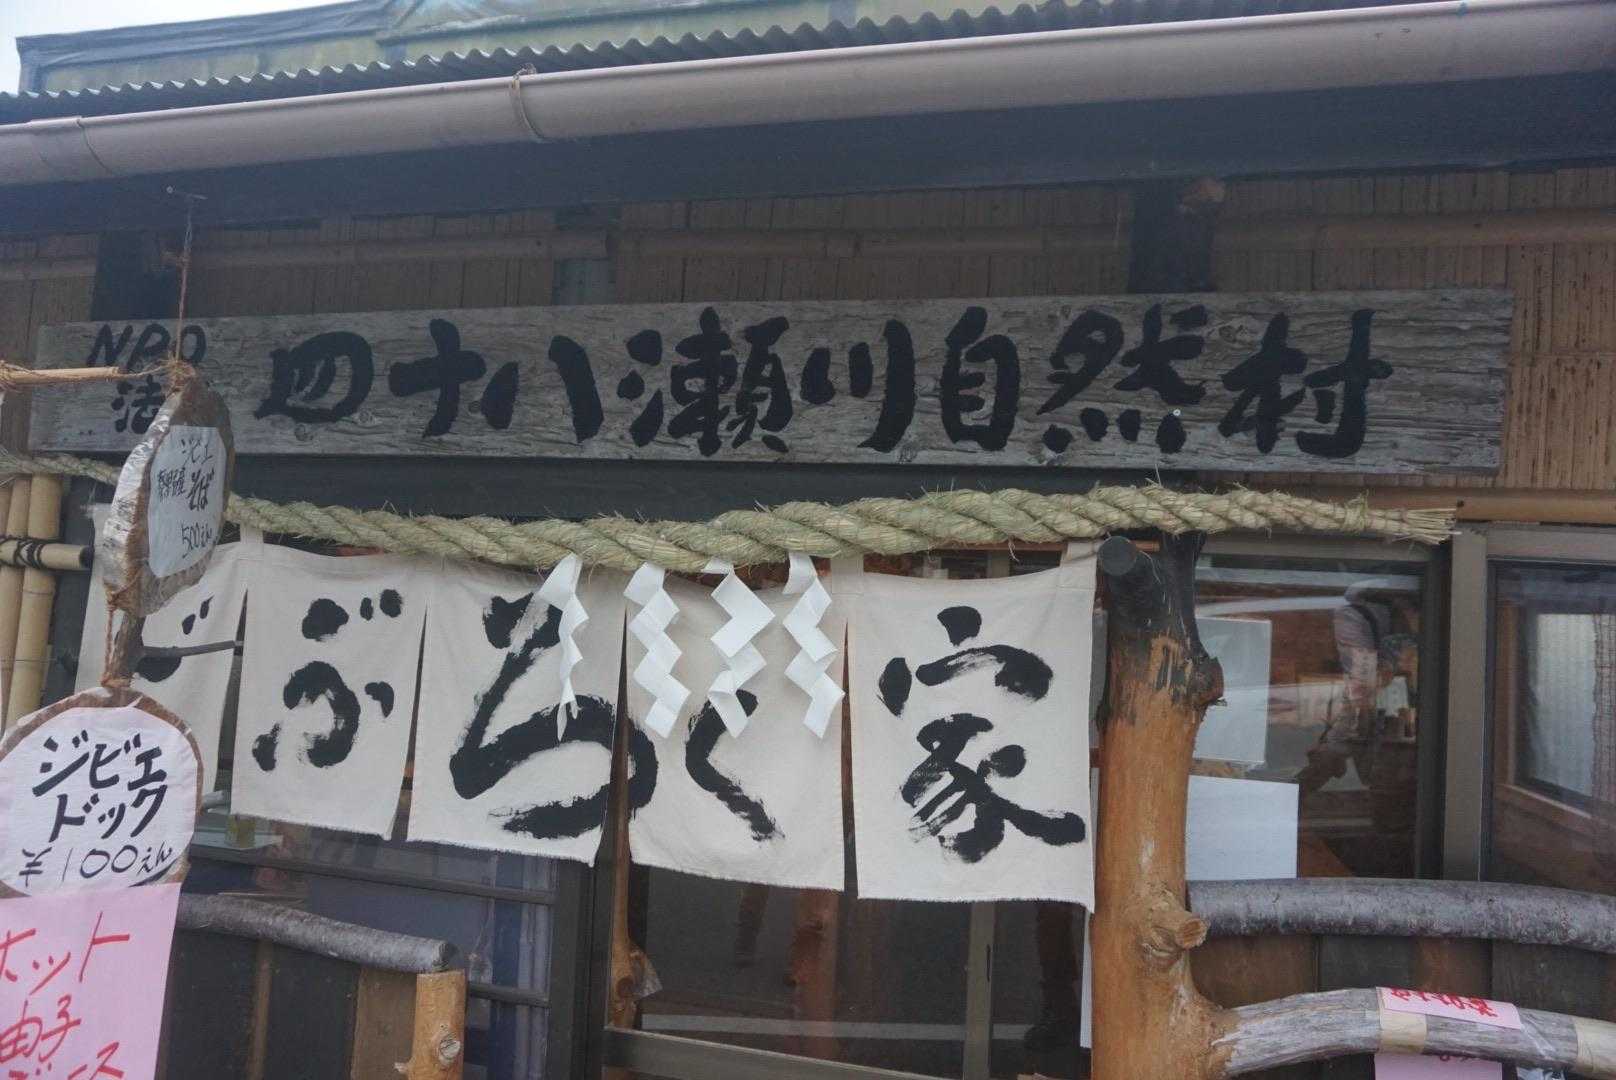 NPO
法
四十八瀬川自然村
ジビエ
そば
500えん
じぶろく家
ジビエ
ドック
¥100えん
ホット
柚子